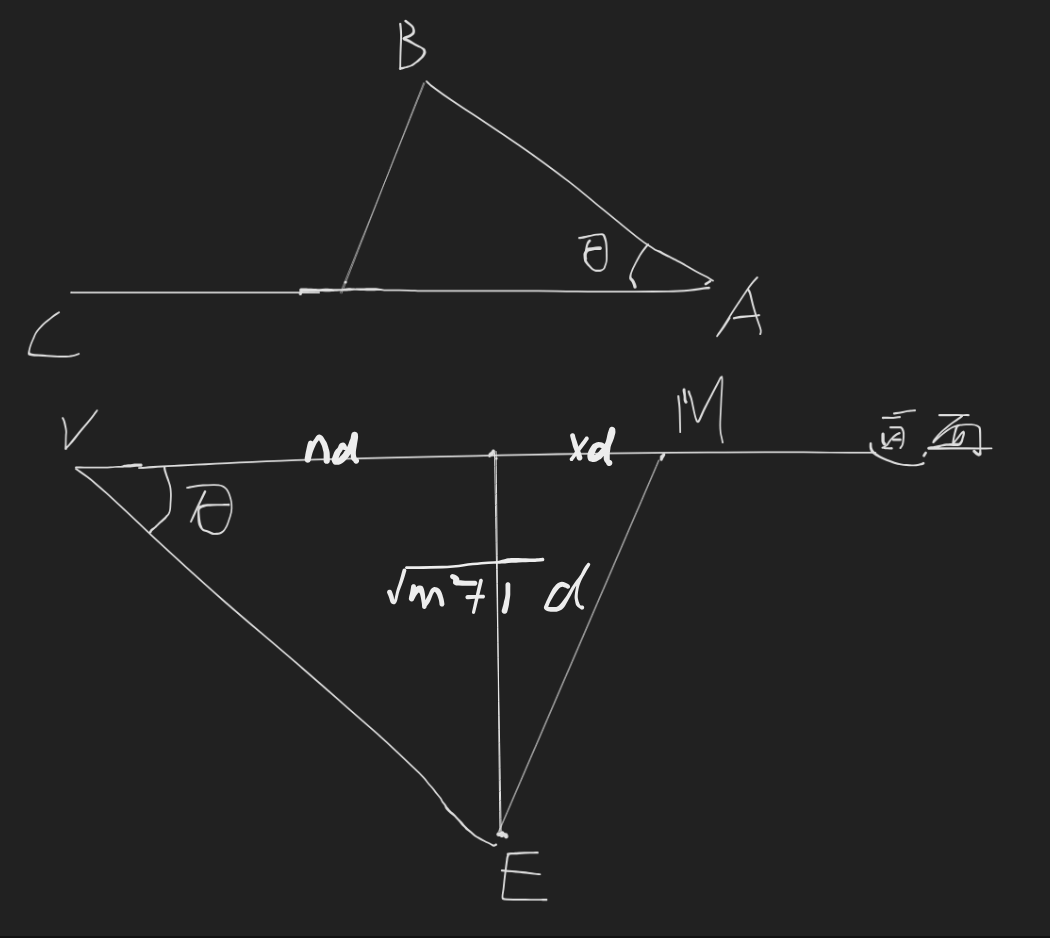 B
θ
A
C
M
V
nd
xd
画面
θ
√m²+1 d
E